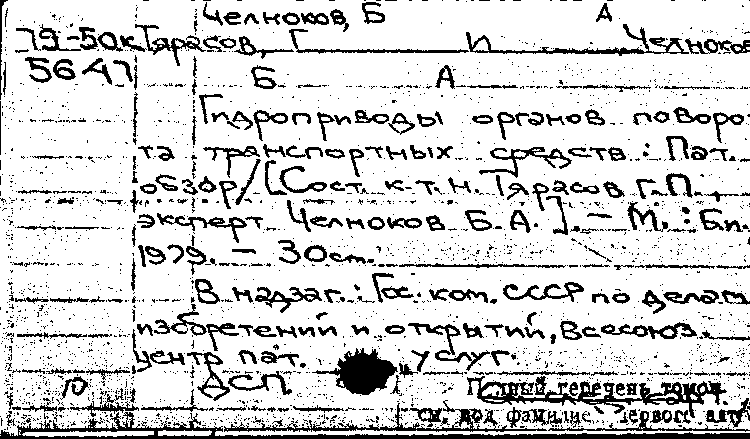 Челноков, Б А
79-50к Тярасов, Г И Челноков
5647 Б А
Гидроприводы органов поворо-
та транспортных средств : Пат.
обзор / [Сост. к.т.н. Тярасов Г.П.,
эксперт Челноков Б.А.]. – М. : Б.и.
1979. – 30 см.
В надзаг. : Гос. ком. СССР по делам
изобретений и открытий, Всесоюз.
центр пат. услуг.
10 ДСП.
Полный перечень томов
см. под фамилие первого авт